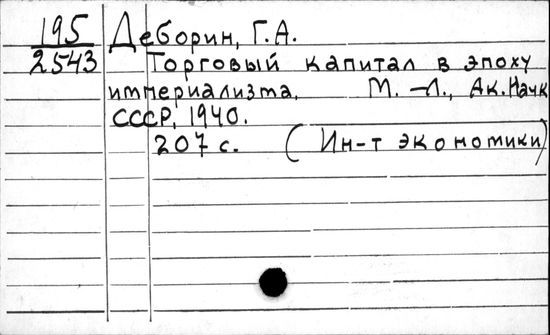 195 Деборин, Г.А.
2543 Торговый капитал в эпоху
империализма. М.-Л., Ак.Наук
СССР, 1940.
207 с. (Ин-т экономики)